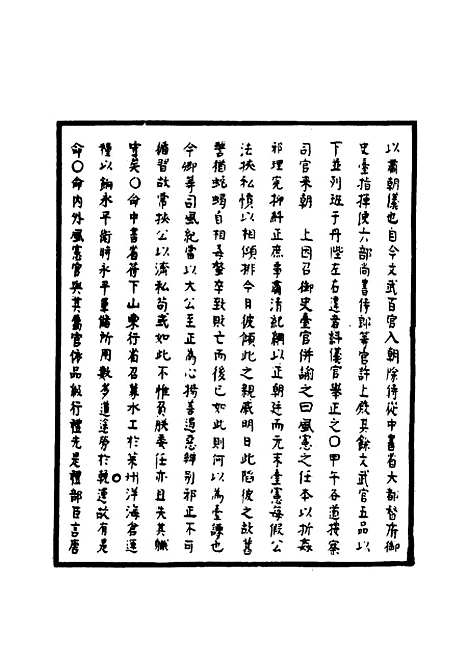 以肅朝儀也自今文武百官入朝除侍從中書省大都督府御
史臺指揮使六部尚書侍郎等官許上殿其餘文武官五品以
下並列班于丹陛左右違者許儀官舉正之○甲午各道按察
司官來朝　上因召御史臺官併諭之曰風憲之任本以折姦
邪理冤抑糾正庶事肅清紀綱以正朝廷而元末臺憲每假公
法挾私憤以相傾排今日彼傾此之親戚明日此陷彼之故舊
譬猶蛇蝎自相毒螫卒致敗亡而後已如此則何以為臺諫也
今卿等司風紀當以大公至正為心揚善遏惡辨別邪正不可
循習故常挾公以濟私苟或如此不惟負朕委任亦且失其職
守矣○命中書省符下山東行省召募水工於萊州洋海倉運
糧以餉永平衛時永平軍儲所用數多道途勞於輓運故有是
命○命內外風憲官與其屬官依品級行禮先是禮部臣言唐